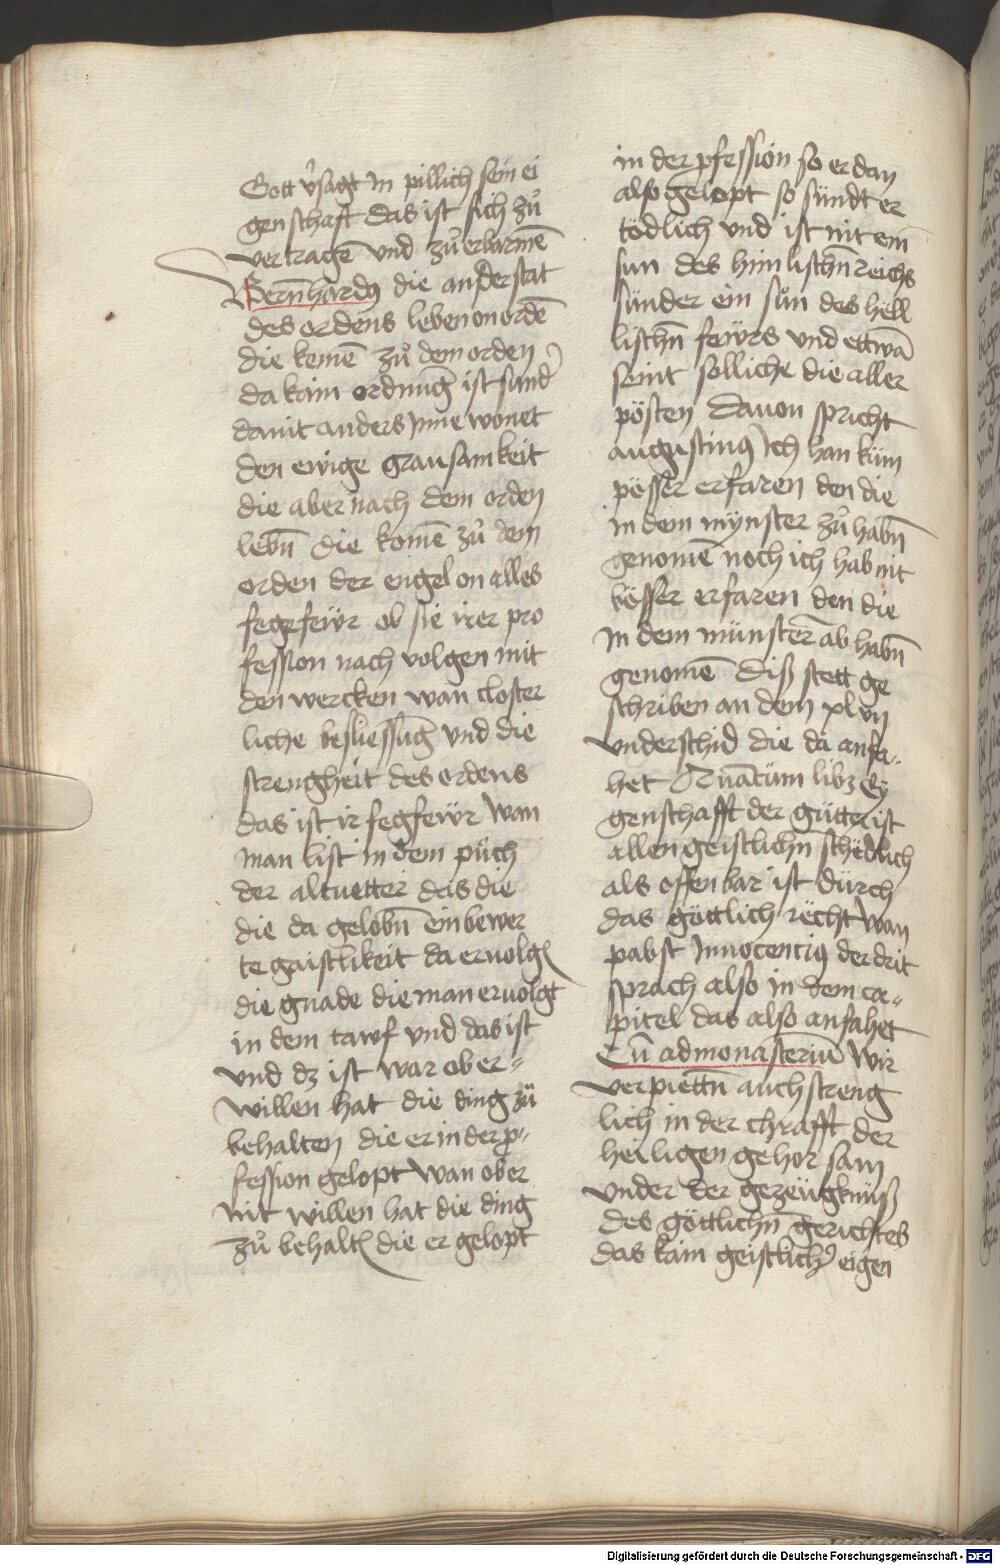 Gott v̓sagt Jn pillich sein ei
genschaft das ist sich zů
vertragē und zů erbarmē
Bern̄hardꝯ die an der stat
des ordens leben on ordē
die kemē zů dem orden
da kain ordnūg ist sund̓
damit anders jnne wonet
den ewige grausamkeit
die aber nach dem orden
lebn̄ die komē zů dem
orden der engel on alles
fegefeẅr ob sie irer pro
fession nach volgen mit
den wercken wan closter
liche besliessūg vnd die
strengheit des ordens
das ist ir fegfeẅr Wan
man list in dem půch
der altuetter das die
die da gelobn̄ ein bewer
te gaistlikeit da eruolgẽ
die gnade die man eruolgt
in dem tawf vnd das ist
vnd dz ist war ob er⸗
willen hat die ding zů
behalten die er in der p̱⸗
fession gelopt Wan ob er
nit willen hat die ding
zů behaltẽ die er gelopt
in der p̱fession so er dan
also gelopt so sündt er
tödlich vnd ist nit ein
sun des himlischn̄ reichs
sünder ein sůn des hell
lischn̄ feẅrs vnd ettwā
seint solliche die aller
pösten dauon spricht
augustinꝯ Ich han küm
pösser erfaren den die
in dem mynster zů habn̄
genomē noch ich hab nit
bösser erfaren den die
in dem münster ab habn̄
genomē diß stett ge
schriben an dem xlvij
vnderschid die da anfa⸗
het Quātum libz Ey
genschafft der gütter ist
allen geistlichn̄ schedlich
als offenbar ist durch
das göttlich recht Wan
pabst Jnnocentiꝯ der drit
sprach also in dem ca⸗
pitel das also anfahet
Cū ad monasteriū Wir
verpiettn̄ auch streng
lich in der chrafft der
heiligen gehorsam
vnder der gezeügknüß
des göttlichn̄ gerichtes
das kain geistlich̓ eigen
Digitalisierung gefördert durch die Deutsche Forschungsgemeinschaft - DFG